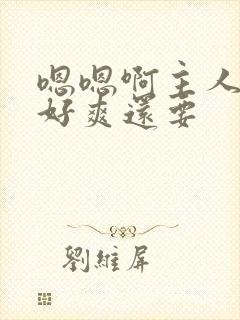 嗯嗯啊主人
好爽還要
劉維屏